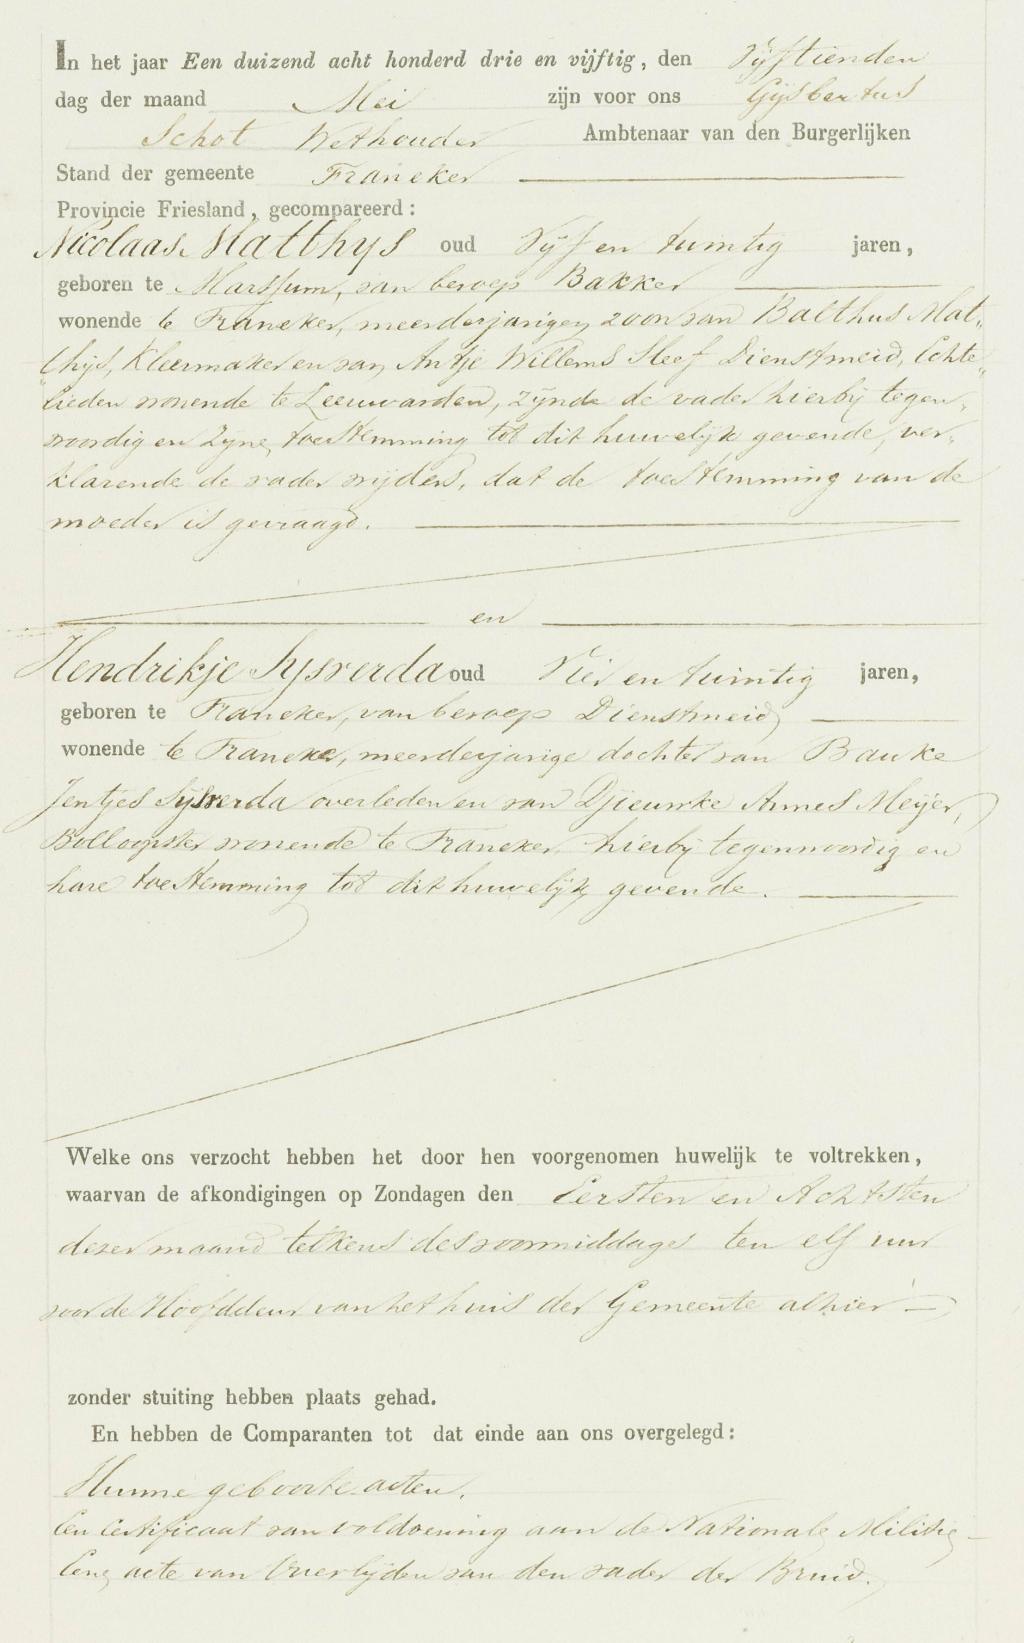 In het jaar Een duizend acht honderd drie en vijftig, den Vijftienden
dag der maand Mei zijn voor ons Gijsbertus
Schot Wethouder Ambtenaar van den Burgerlijken
Stand der gemeente Franeker
Provincie Friesland, gecompareerd:
Nicolaas Matthijs oud Vijf en twintig jaren,
geboren te Marssum, van beroep Bakker
wonende te Franeker, meerderjarigen zoon van Balthus Mat„
„thijs, Kleermaker en van Antje Willems Sleef Dienstmeid, Echte„
lieden wonende te Leeuwarden, zijnde de vader hierbij tegen„
woordig en zijne toestemming tot dit huwelijk gevende, ver„
klarende de vader wijders, dat de toestemming van de
moeder is gevraagd.
en
Hendrikje Sijsverda oud Vier en twintig jaren,
geboren te Franeker, van beroep Dienstmeid
wonende te Franeker, meerderjarige dochter van Bauke
Jentjes Sijsverda overleden en van Djieuwke Annes Meijer,
wonende te Franeker hierbij tegenwoordig en
hare toestemming tot dit huwelijk gevende.
Welke ons verzocht hebben het door hen voorgenomen huwelijk te voltrekken,
waarvan de afkondigingen op Zondagen den Eersten en Achtsten
dezer maand telkens des voormiddags ten elf uur
voor de Hoofddeur van het huis der Gemeente alhier
zonder stuiting hebben plaats gehad.
En hebben de Comparanten tot dat einde aan ons overgelegd:
Hunne geboorte acten.
Een Certificaat van voldoening aan de Nationale Militie
Eene acte van Overlijden van den vader der Bruid.